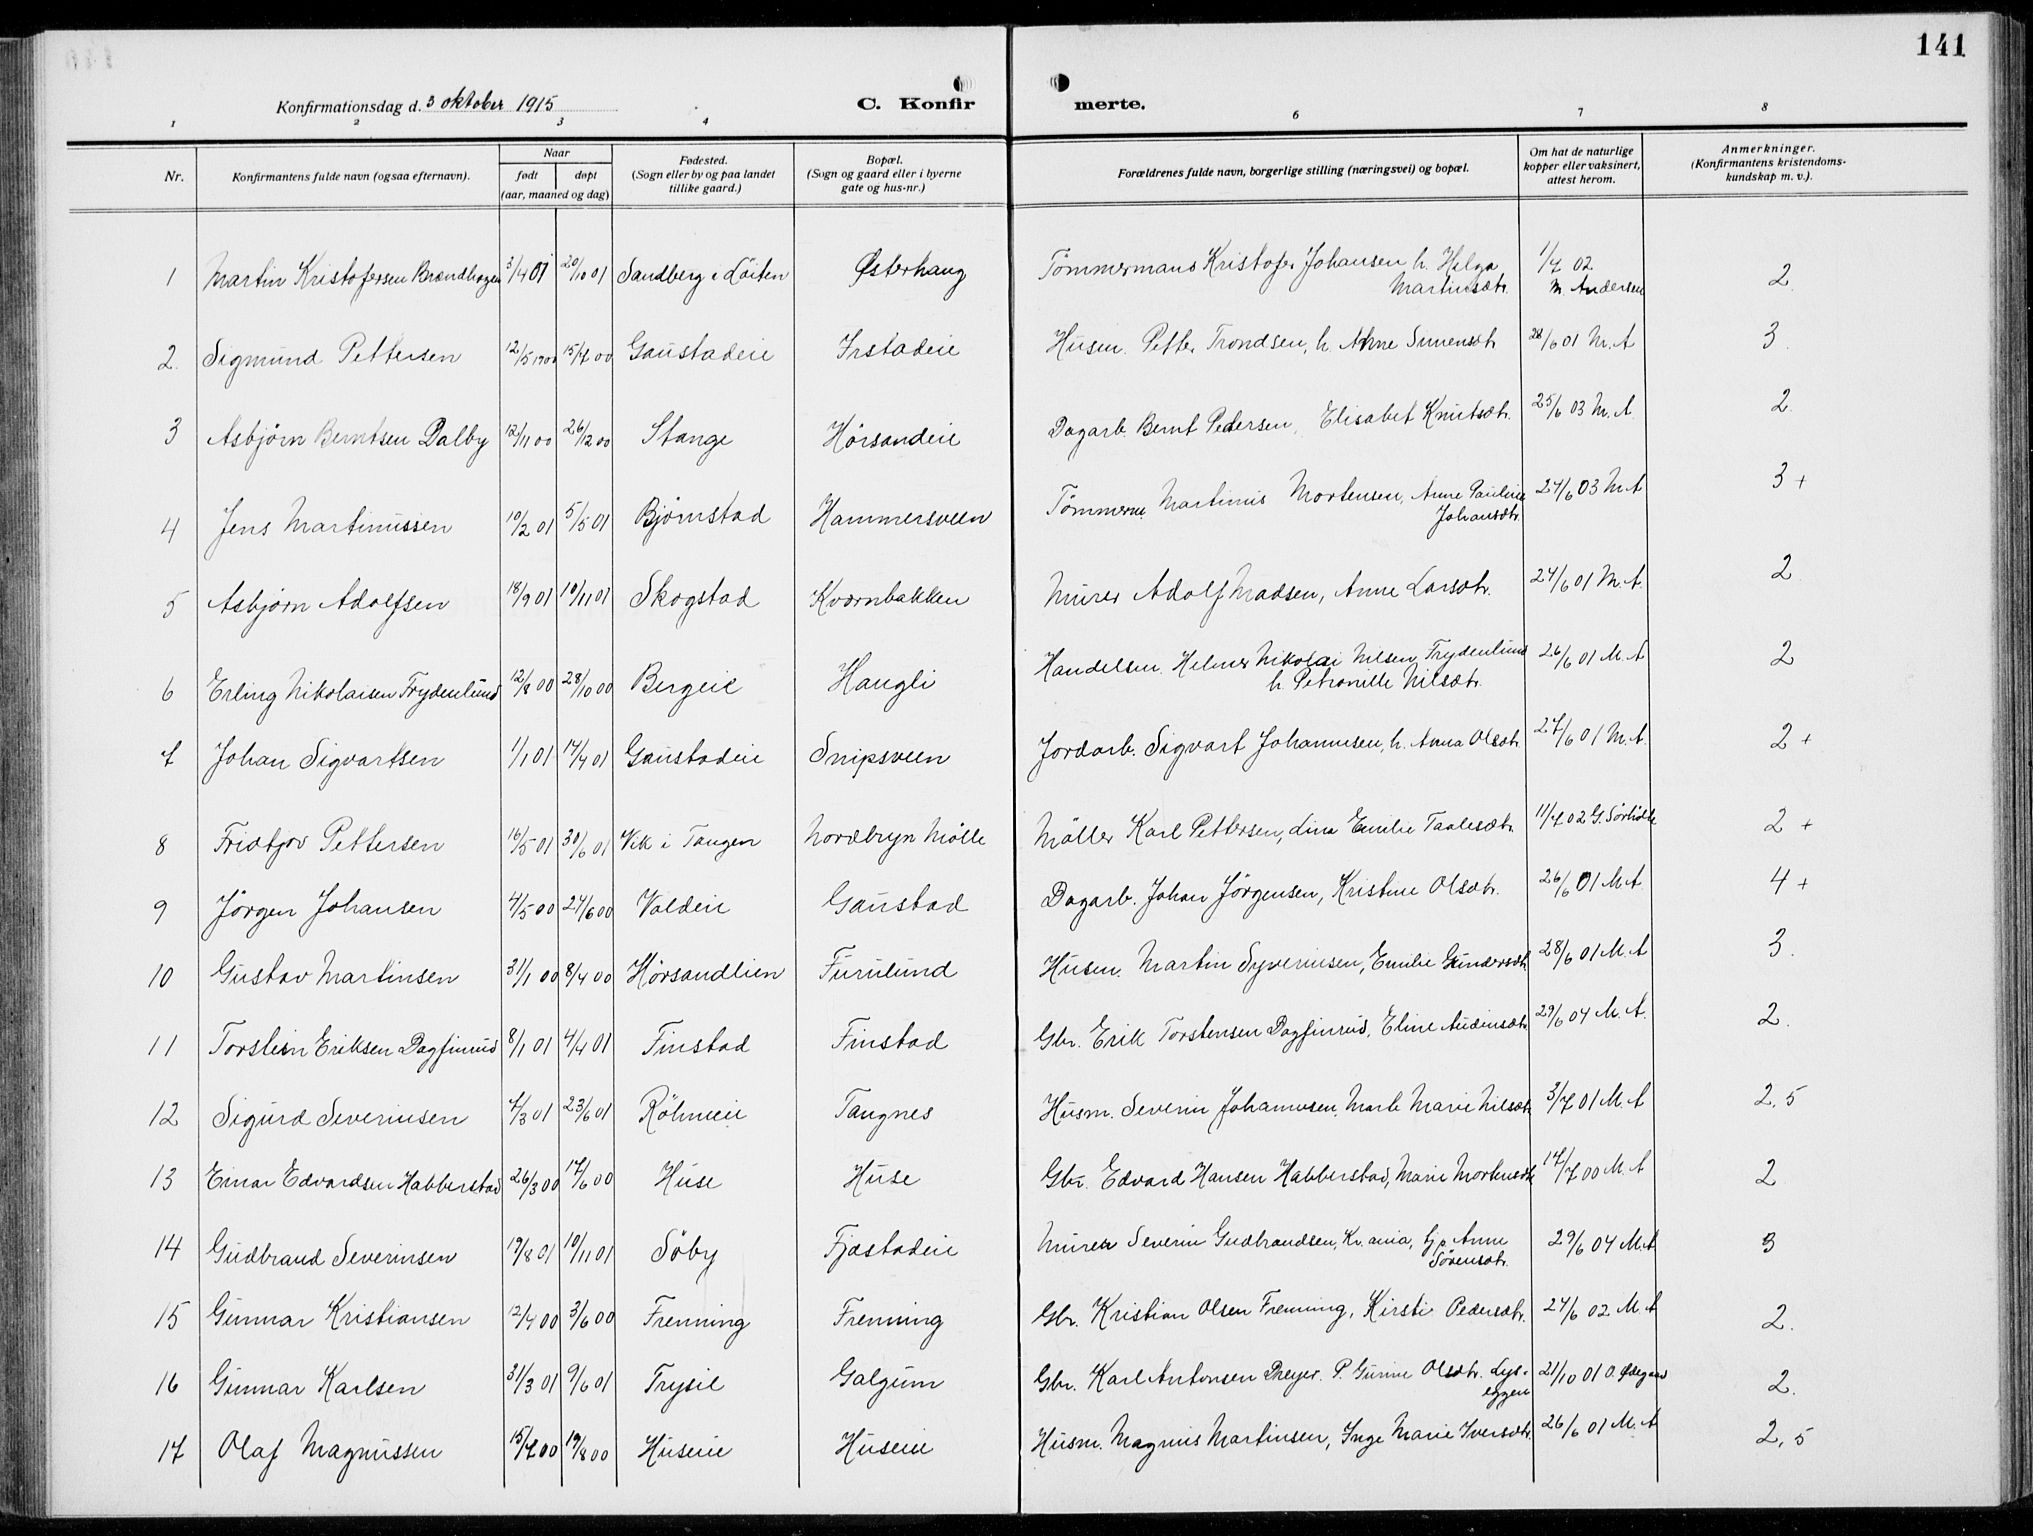 141
Konfirmationsdag d. 3 oktober 1915
C. Konfir merte.
1 2 3 4 6 7 8
Nr.
Konfirmantens fulde navn (ogsaa efternavn).
Naar
født døpt
(aar, maaned og dag)
Fødested.
(Sogn eller by og paa landet
tillike gaard.)
Bopæl.
(Sogn og gaard eller i byerne
gate og hus-nr.)
Forældrenes fulde navn, borgerlige stilling (næringsvei) og bopæl.
Om hat de naturlige
kopper eller vaksinert,
attest herom.
Anmerkninger.
(Konfirmantens kristendoms-
kundskap m. v.).
1 Martin Kristofersen Brændhagen 3/4 01 20/10 01 Sandberg i Löiten Østerhaug Tömmermans Kristofer Johansen h. Helga 1/7 02 2.
Martinsdtr. M. Andersen
2. Sigmund Pettersen 12/5 1900 15/7 00 Gaustadeie Irstadeie Husm. Petter Trondsen, h. Anne Simensdtr 28/6 01 M. A 3.
3 Asbjörn Berntsen Dalby 12/11 00 26/12 00 Stange Hörsandeie Dagarb. Bernt Pedersen, Elisabet Knutsdtr. 25/6 03 M. A. 2.
4 Jens Martinussen 10/2 01 5/5 01 Björnstad Hammersveen Tömmerm. Martinus Mortensen, Anne Pauline 24/6 03 M A 3 +
Johansdtr.
5 Asbjörn Adolfsen 18/9 01 10/11 01 Skogstad Kværnbakken Murer Adolf Madsen, Anne Larsdtr. 24/6 01 M. A. 2
6 Erling Nikolaisen Frydenlund 12/8 00 28/10 00 Bergeie Haugli Handelsm. Helmer Nikolai Nilsen Frydenlund 26/6 01 M. A 2
h. Petronille Nilsdtr.
7 Johan Sigvartsen 1/1 01 14/4 01 Gaustadeie Snipsveen Jordarb. Sigvart Johannesen, h. Anna Olsdtr. 27/6 01 M. A. 2 +
8 Fridtjov Pettersen 16/5 01 30/6 01 Vik i Tangen Nordbryn Mölle Möller Karl Pettersen, Lina Emilie Taalesdtr. 11/7 02 2 +
9 Jörgen Johansen 4/5 00 24/6 00 Valdeie Gaustad Dagarb. Johan Jörgensen, Kristine Olsdtr. 26/6 01 M A. 4 +
10 Gustav Martinsen 31/1 00 8/4 00 Hörsandlien Furulund Husm. Martin Syverinsen, Emilie Gundersdtr. 28/6 01 M. A 3.
11 Torstein Eriksen Dagfinrud 8/1 01 4/4 01 Finstad Finstad Gbr. Erik Torstensen Dagfinrud, Eline Audensdtr. 29/6 04 M. A. 2.
12 Sigurd Severinsen 4/3 01 23/6 01 Röhneie Tangnes Husm. Severin Johannesen, Marte Marie Nilsdtr 3/7 01 M. A 2, 5
13 Einar Edvardsen Habberstad 26/3 00 17/6 00 Huse Huse Gbr. Edvard Hansen Habberstad, Marie Mortensdtr. 17/7 00 M. A 2
14 Gudbrand Severinsen 19/8 01 10/11 01 Söby Fjæstadeie Murer Severin Gudbrandsen, Kr.ania, tj.p. Anne 29/6 04 M. A 3
Sörensdtr.
15 Gunnar Kristiansen 12/4 00 3/6 00 Frenning Frenning Gbr. Kristian Olsen Frenning, Kirsti Pedersdtr. 24/6 02 M. A 2.
16 Gunnar Karlsen 31/3 01 9/6 01 Trysil Galgum Gbr. Karl Antonsen Dreyer. P. Gurine Olsdtr. Lys- 21/10 01 O. Ødegaard 2.
eggen
17 Olaf Magnussen 15/7 00 19/8 00 Huseie Huseie Husm. Magnus Martinsen, Inge Marie Iversdtr. 26/6 01 M. A 2, 5